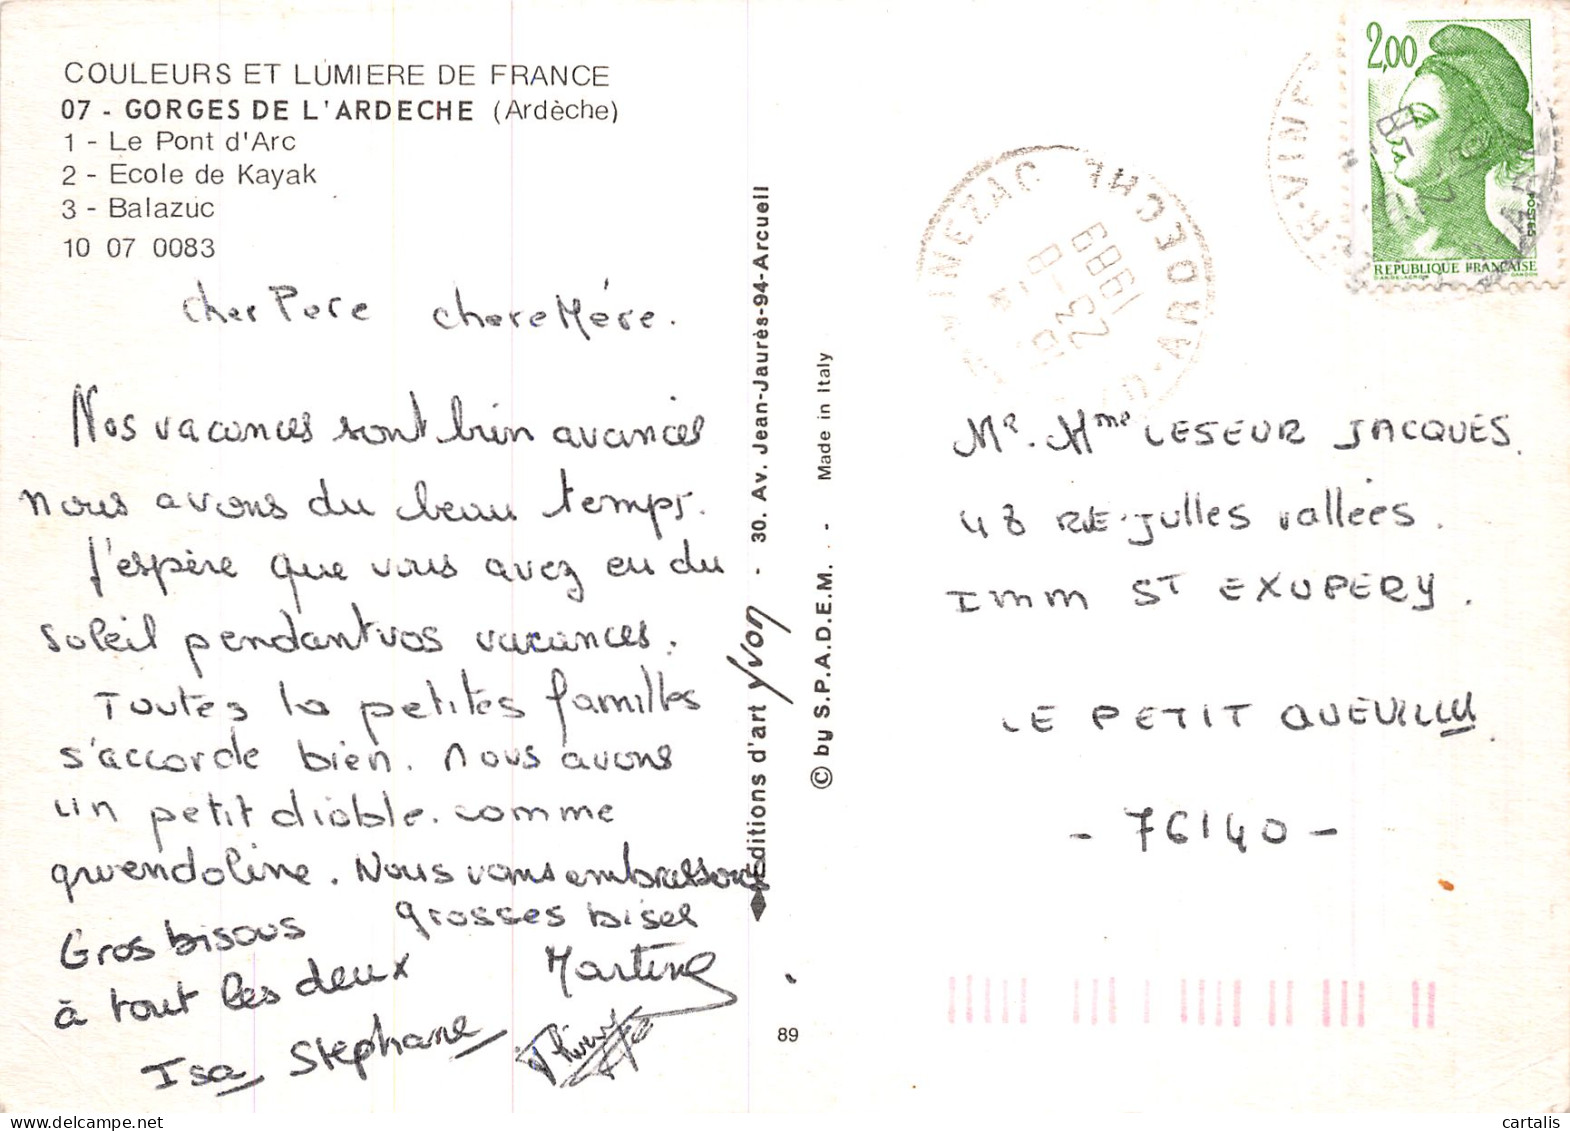 COULEURS ET LUMIERE DE FRANCE
07 - GORGES DE L'ARDECHE (Ardèche)
1 - Le Pont d'Arc
2 - Ecole de Kayak
3 - Balazuc
10 07 0083
cher Pere chere Mére.
Nos vacances sont bien avancées
nous avons du beau temps.
J'espère que vous avez eu du
soleil pendant vos vacances.
Toutes la petites familles
s'accorde bien. Nous avons
un petit diable. comme
gwendoline. Nous vous embrassons
Gros bisous grosses bises
à tout les deux Martine
Isa Stéphane
Editions d'art yvon - 30. Av. Jean-Jaurès-94-Arcueil
© by S.P.A.D.E.M. - Made in Italy
89
2,00
POSTES
REPUBLIQUE FRANÇAISE
VINEZAC
ARDECHE
23-8
1989
Mr. Mme LESEUR JACQUES.
48 RE. Julles vallées.
Imm ST EXUPERY.
LE PETIT QUEVILLY
- 76140 -
cartalis